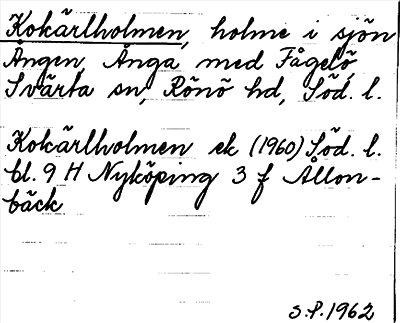 Kokärlholmen, holme i sjön
Ången, Ånga med Fågelö,
Svärta sn, Rönö hd, Söd. l.
Kokärlholmen ek (1960) Söd. l.
bl. 9 H Nyköping 3 f Ållon-
bäck
S.P. 1962